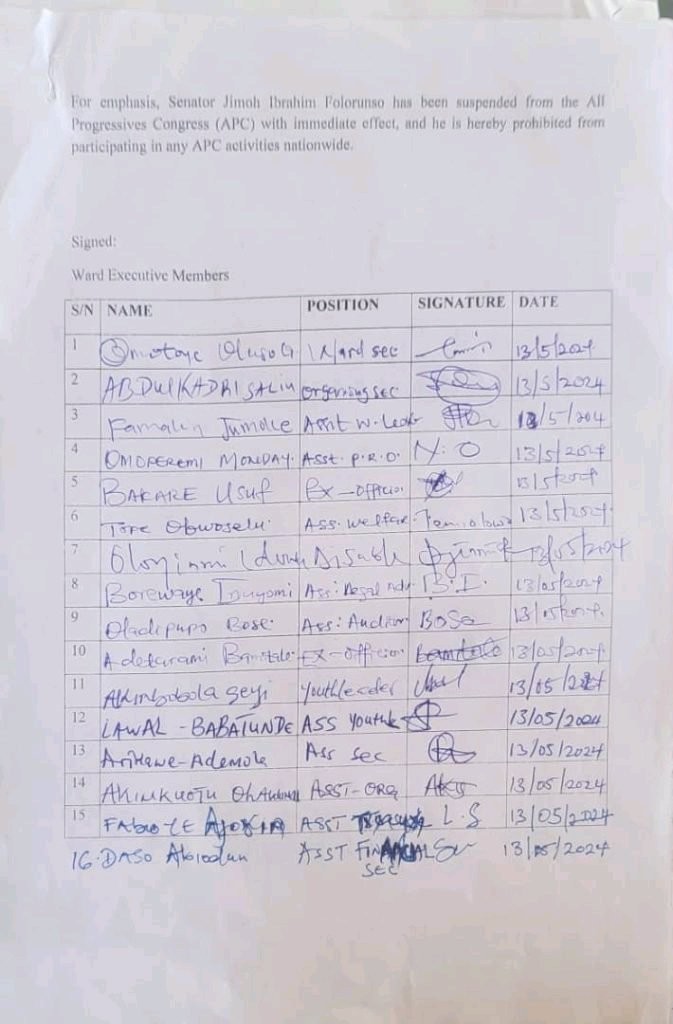 For emphasis, Senator Jimoh Ibrahim Folorunso has been suspended from the All
Progressives Congress (APC) with immediate effect, and he is hereby prohibited from
participating in any APC activities nationwide.
Signed:
Ward Executive Members
S/N NAME POSITION SIGNATURE DATE
1 Ward sec 13/5/2024
2 ABDULKADRI SALIU organising sec 13/5/2024
3 Jumoke Asst W. 13/5/
4 OMOPEREMI MONDAY. Asst. P.R.O. N.O 13/5/2024
5 BAKARE Usuf Ex-officio 13/5/2024
6 Tope Ass. welfare 13/5/2024
7 13/05/2024
8 Borewaye Ass: B.I. 13/05/2024
9 Oladipupo Bose. Ass: BOSE 13/05/2024
10 Adefarami Ex-officio 13/05/2024
11 Akinbobola Seyi Youth leader 13/05/2024
12 LAWAL - BABATUNDE ASS Youth 13/05/2024
13 Arikawe-Ademola Ass sec 13/05/2024
14 ASST-ORG 13/05/2024
15 ASST L.S 13/05/2024
16. DASO Abiodun ASST FINANCIAL 13/05/2024
SEC